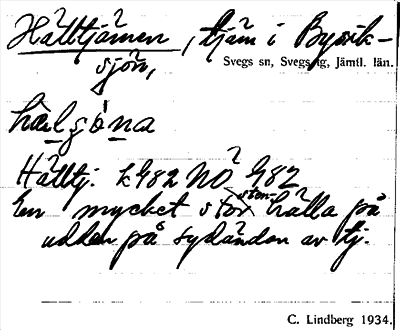 Hälltjärnen, tjärn i Byvik-
sjön,
Svegs sn, Svegs tg, Jämtl. län.
Hälltj. k 982 NO 982
En mycket stor sten- hälla på
udden på sydändan av tj.
C. Lindberg 1934.